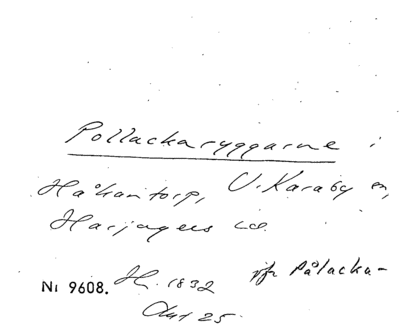 Pollackaryggarne i
Håkantorp, V. Karaby sn,
Harjagers hd.
Nr 9608. H. 1832 jfr Pålacka-
Akt 25.